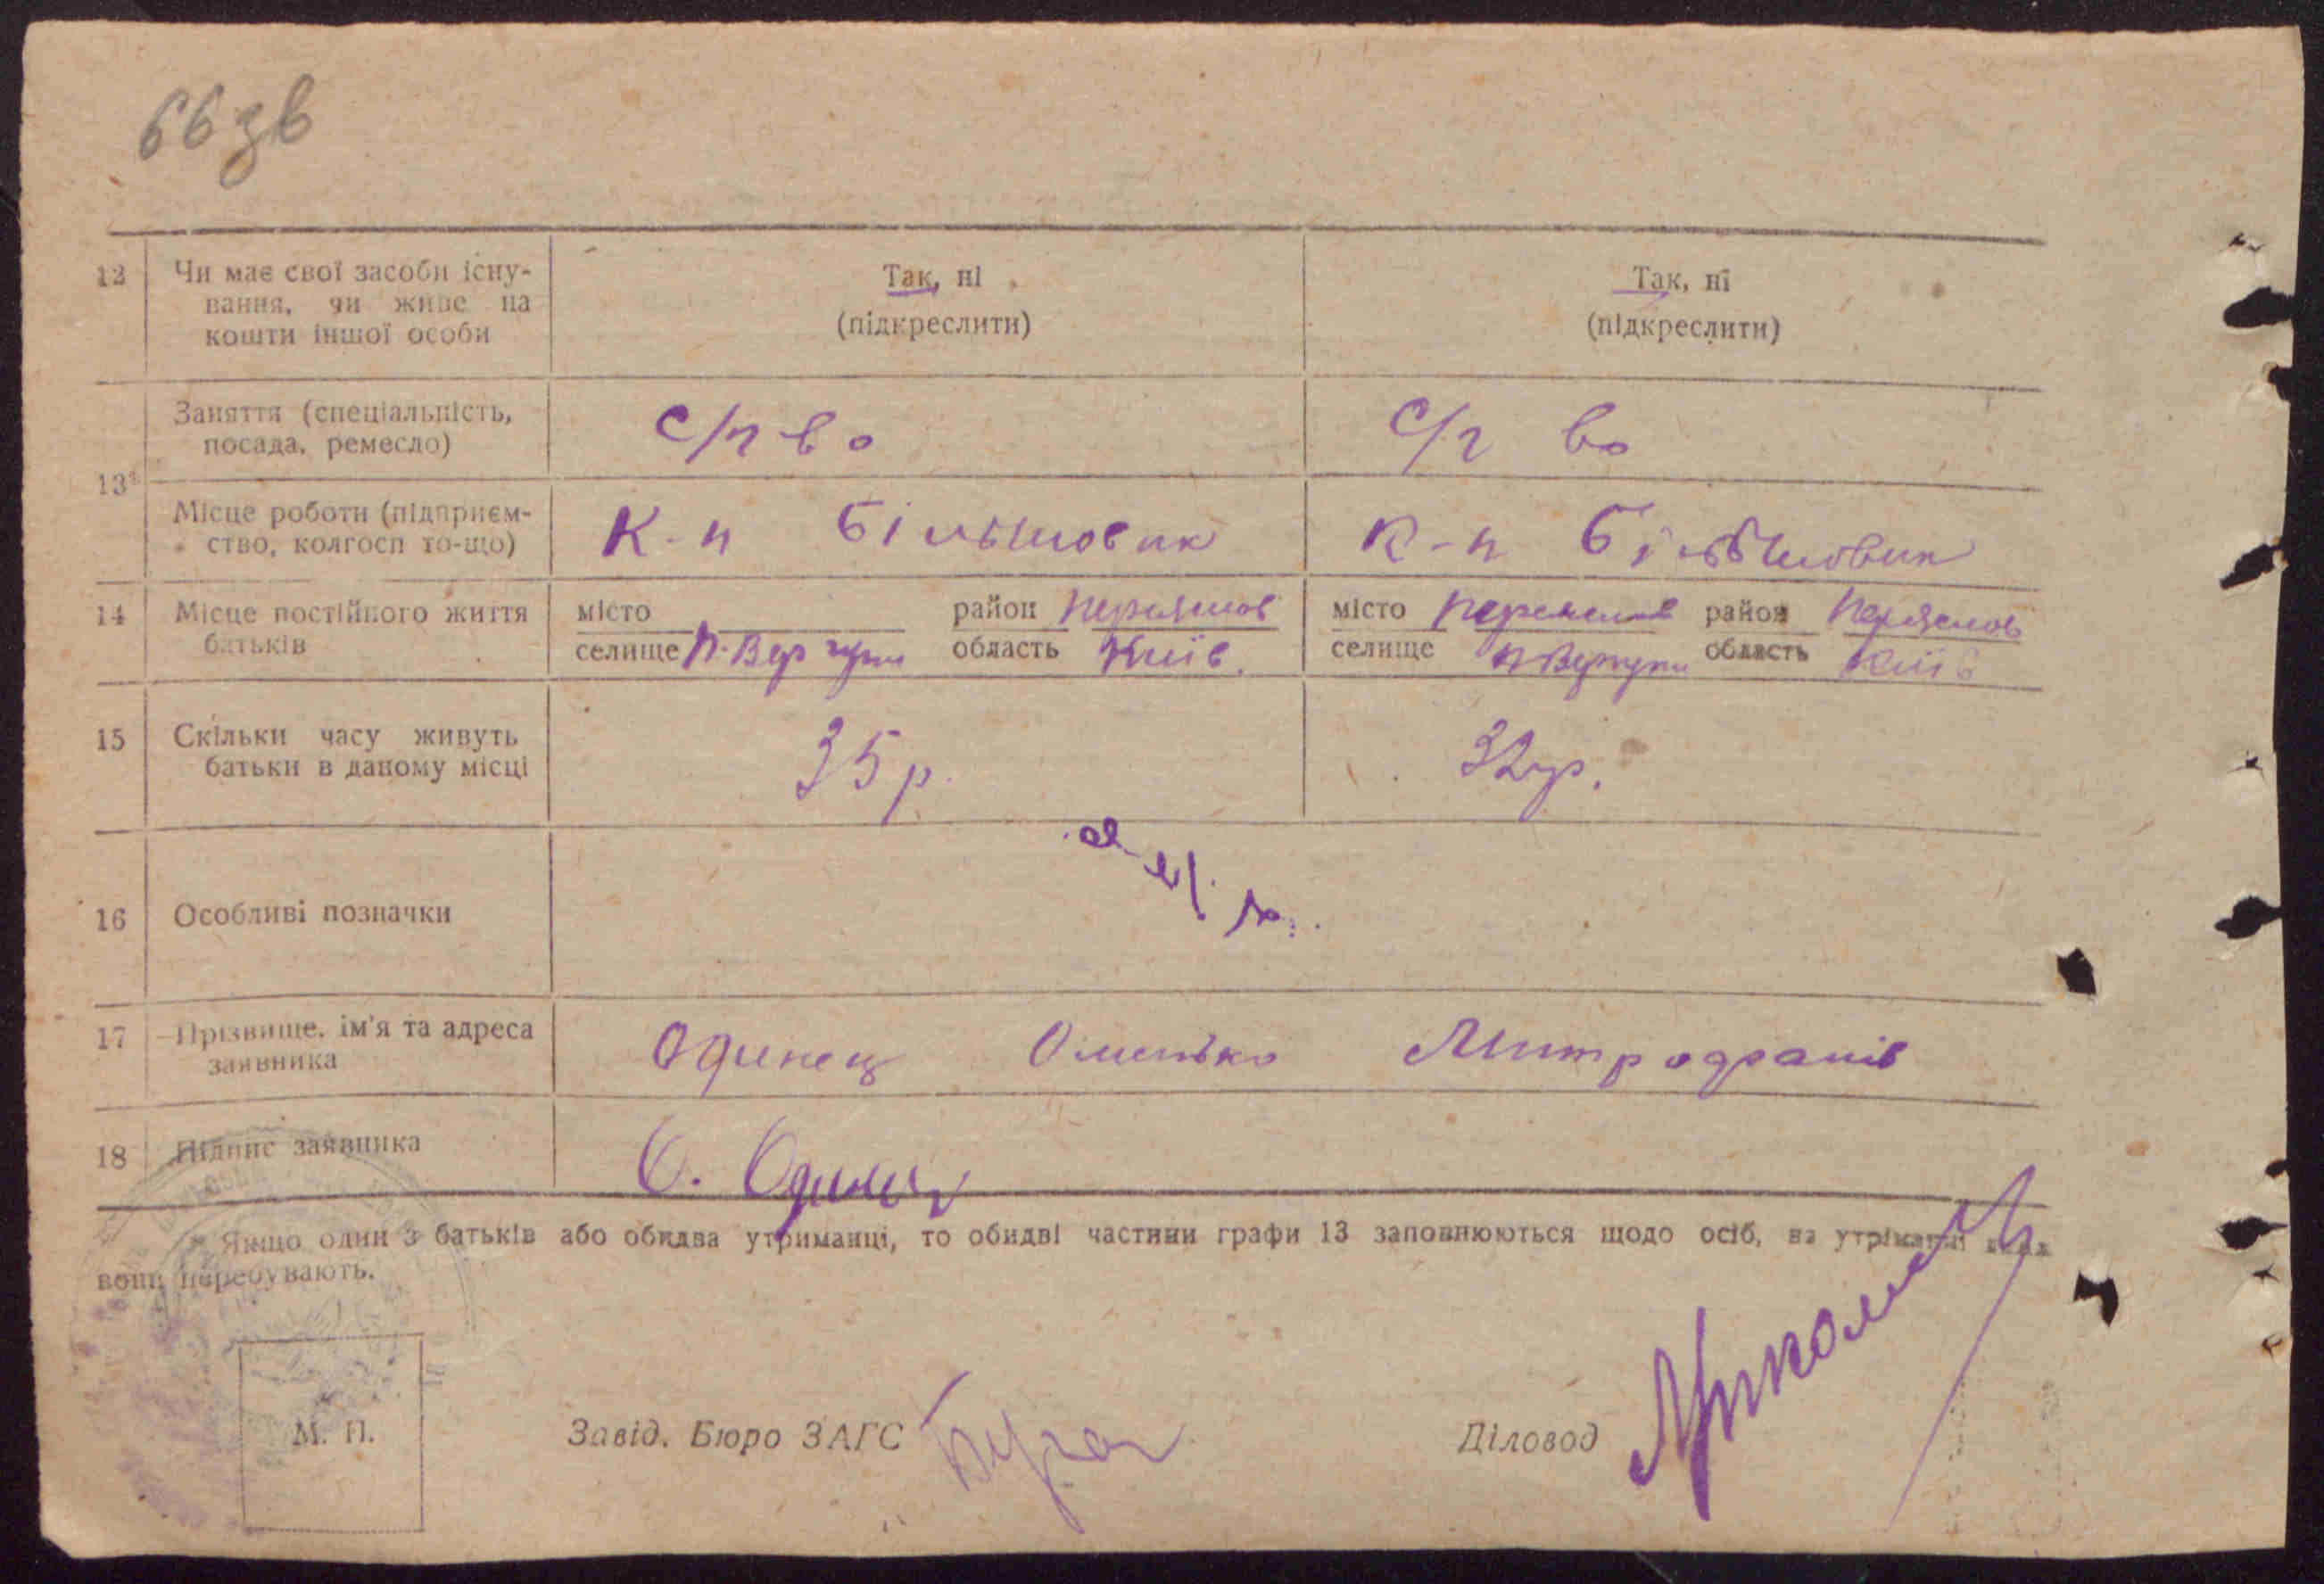 66 зв
12 Чи має свої засоби існу- Так, ні Так, ні
вання, чи живе на (підкреслити) (підкреслити)
кошти іншої особи
Заняття (спеціальність, с/г во с/г во
посада, ремесло)
13
Місце роботи (підприєм- К-п Більшовик К-п Більшовик
ство, колгосп то-що)
14 Місце постійного життя місто район Переяслов місто Переяслов район Переяслов
батьків селище П. Вергуни область Київ. селище П Вергуни область Київ
15 Скільки часу живуть 35 р. 32 р.
батьки в даному місці
16 Особливі позначки
17 Прізвище, ім'я та адреса Одинец Оменько
заявника
18 Підпис заявника О. Одинец
Якщо один з батьків або обидва утриманці, то обидві частини графи 13 заповнюються щодо осіб, на утриманні яких
вони перебувають.
М. П. Завід. Бюро ЗАГС Діловод